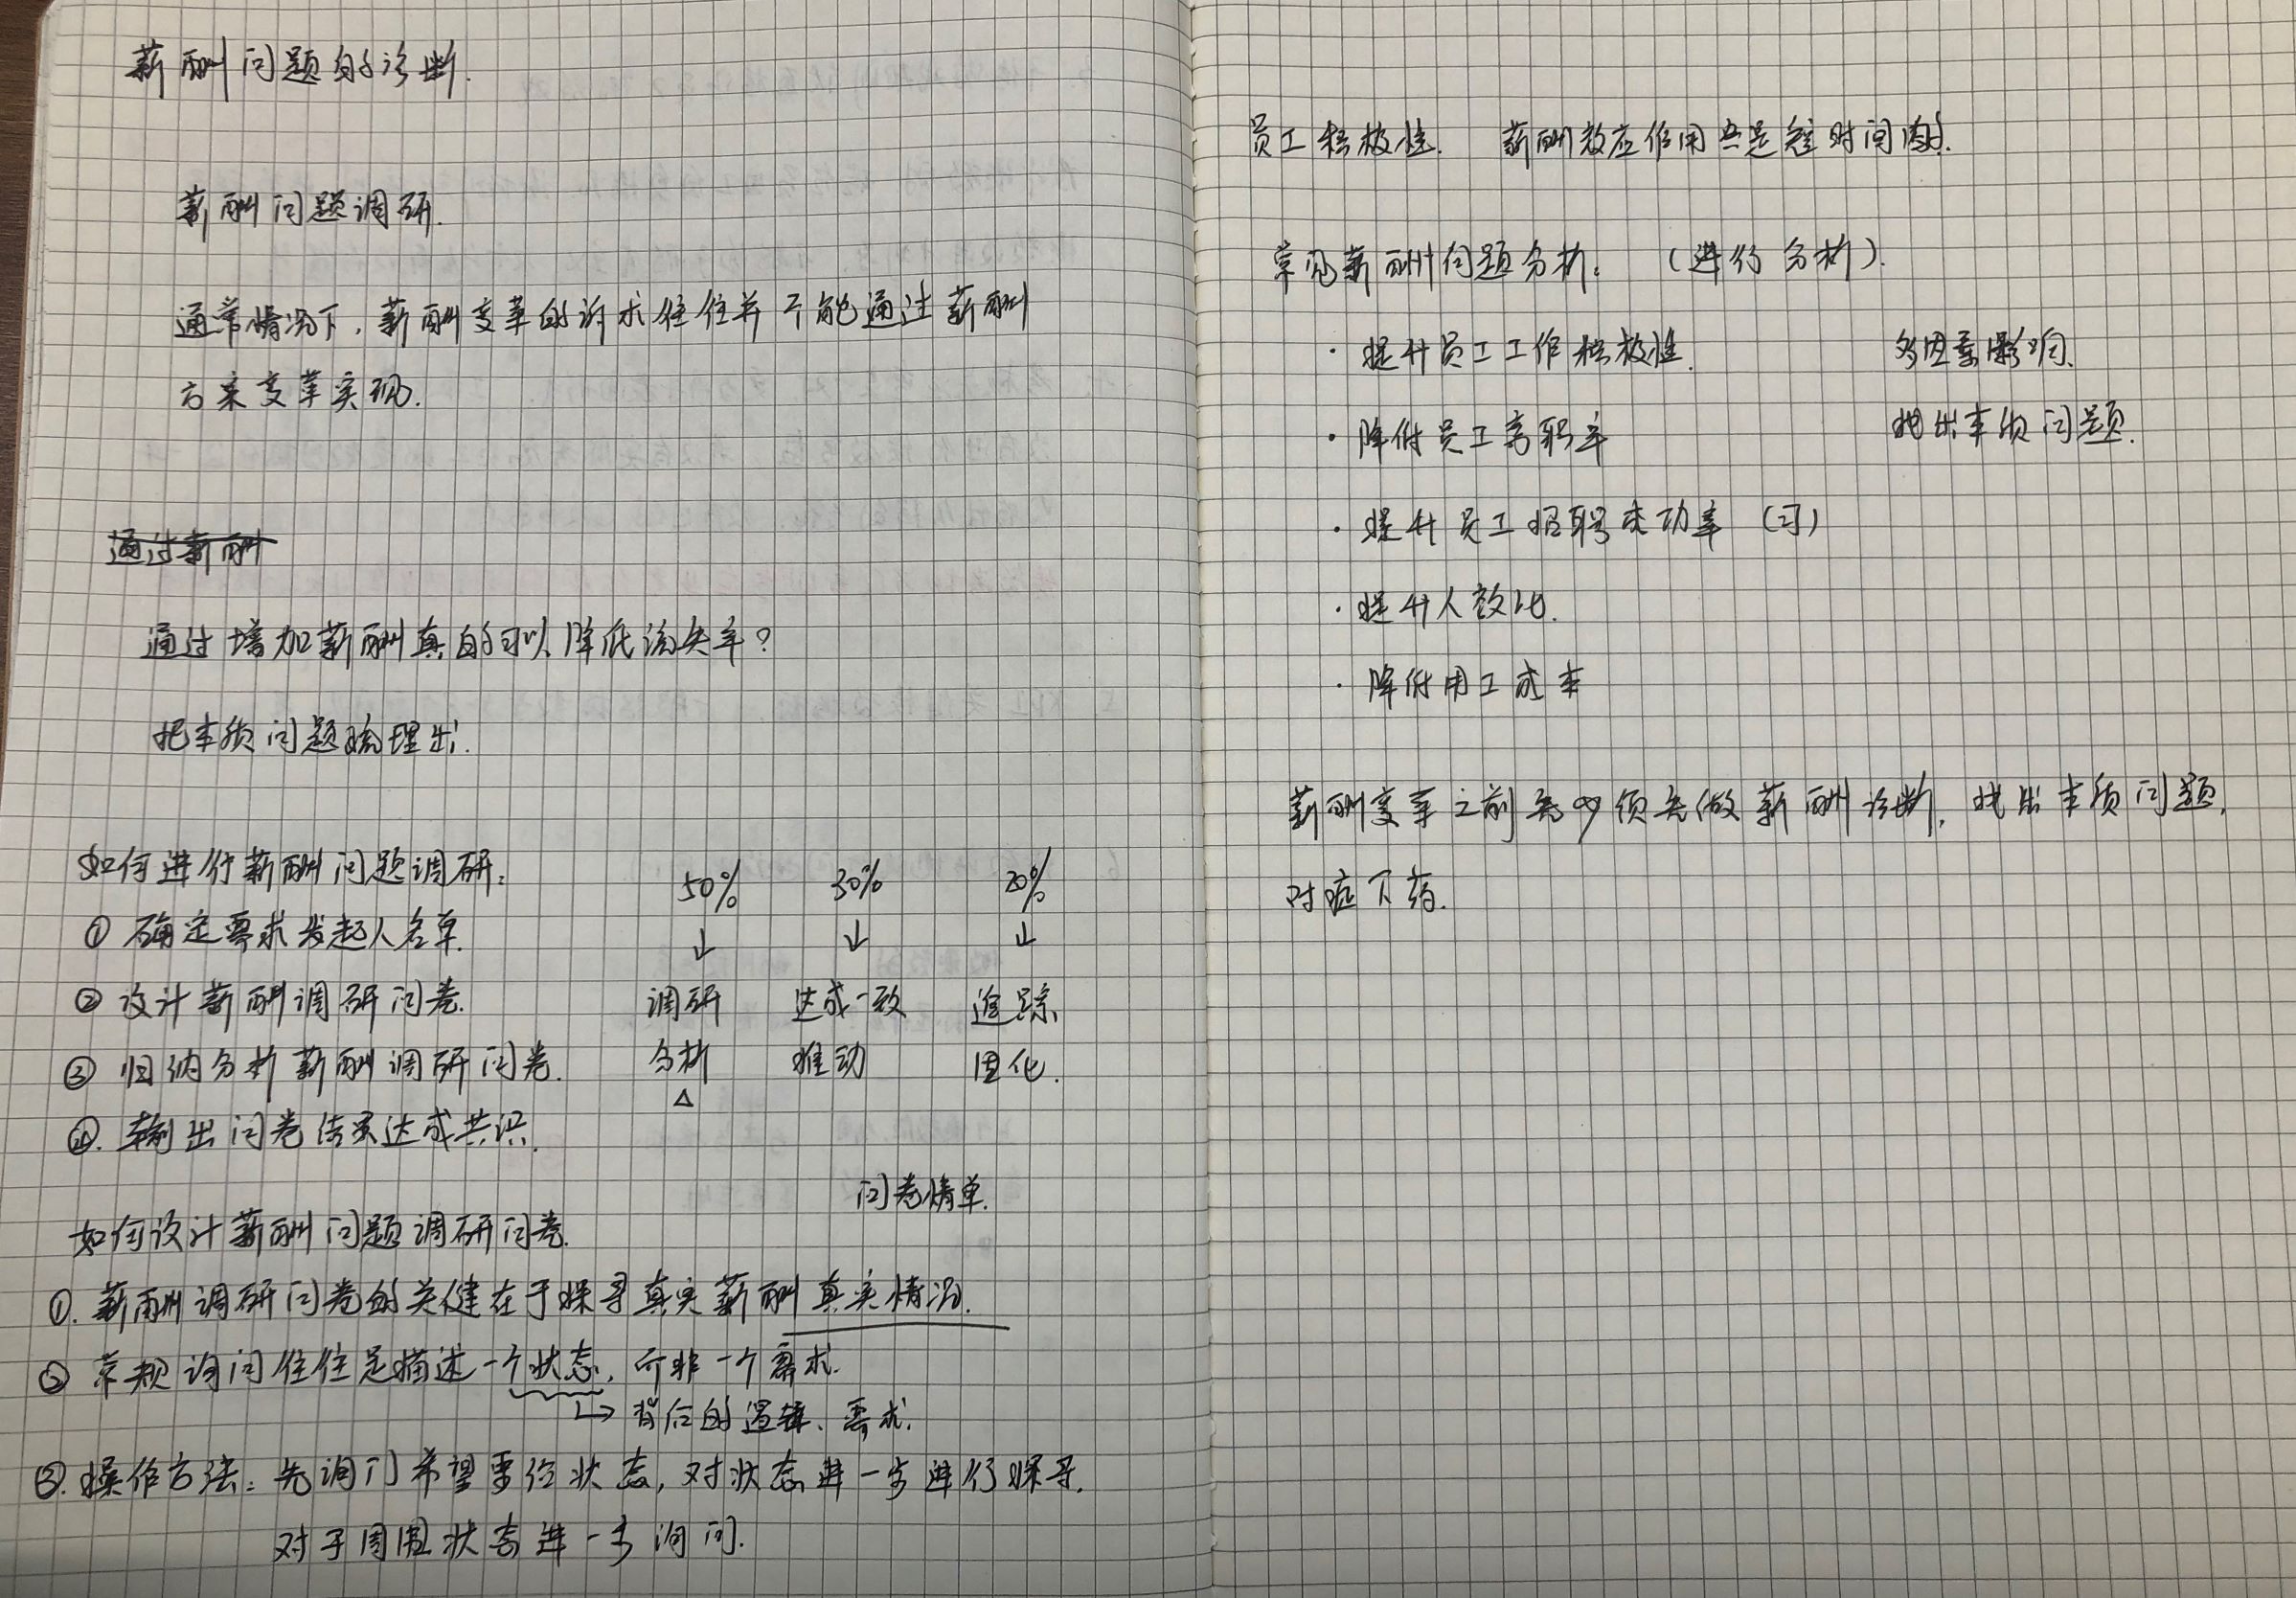 薪酬问题的诊断.
薪酬问题调研.
通常情况下,薪酬变革的诉求往往并不能通过薪酬
方案变革实现.
通过薪酬
通过增加薪酬真的可以降低流失率?
把本质问题梳理出.
如何进行薪酬问题调研:
50% 30% 20%
① 确定需求发起人名单.
↓ ↓ ↓
② 设计薪酬调研问卷.
调研 达成一致 追踪
③ 归纳分析薪酬调研问卷.
分析 推动 固化.
△
④. 输出问卷结果达成共识.
问卷清单.
如何设计薪酬问题调研问卷.
①. 薪酬调研问卷的关键在于探寻真实薪酬真实情况.
② 常规询问往往是描述一个状态,而非一个需求.
↳ 背后的逻辑、需求.
③. 操作方法: 先询问希望要的状态,对状态进一步进行探寻.
对于周围状态进一步询问.
员工积极性. 薪酬效应作用只是短时间的.
常见薪酬问题分析: (进行分析).
· 提升员工工作积极性. 多因素影响.
· 降低员工离职率 找出本质问题.
· 提升员工招聘成功率 (可)
· 提升人效比.
· 降低用工成本
薪酬变革之前务必须先做薪酬诊断,找出本质问题,
对症下药.